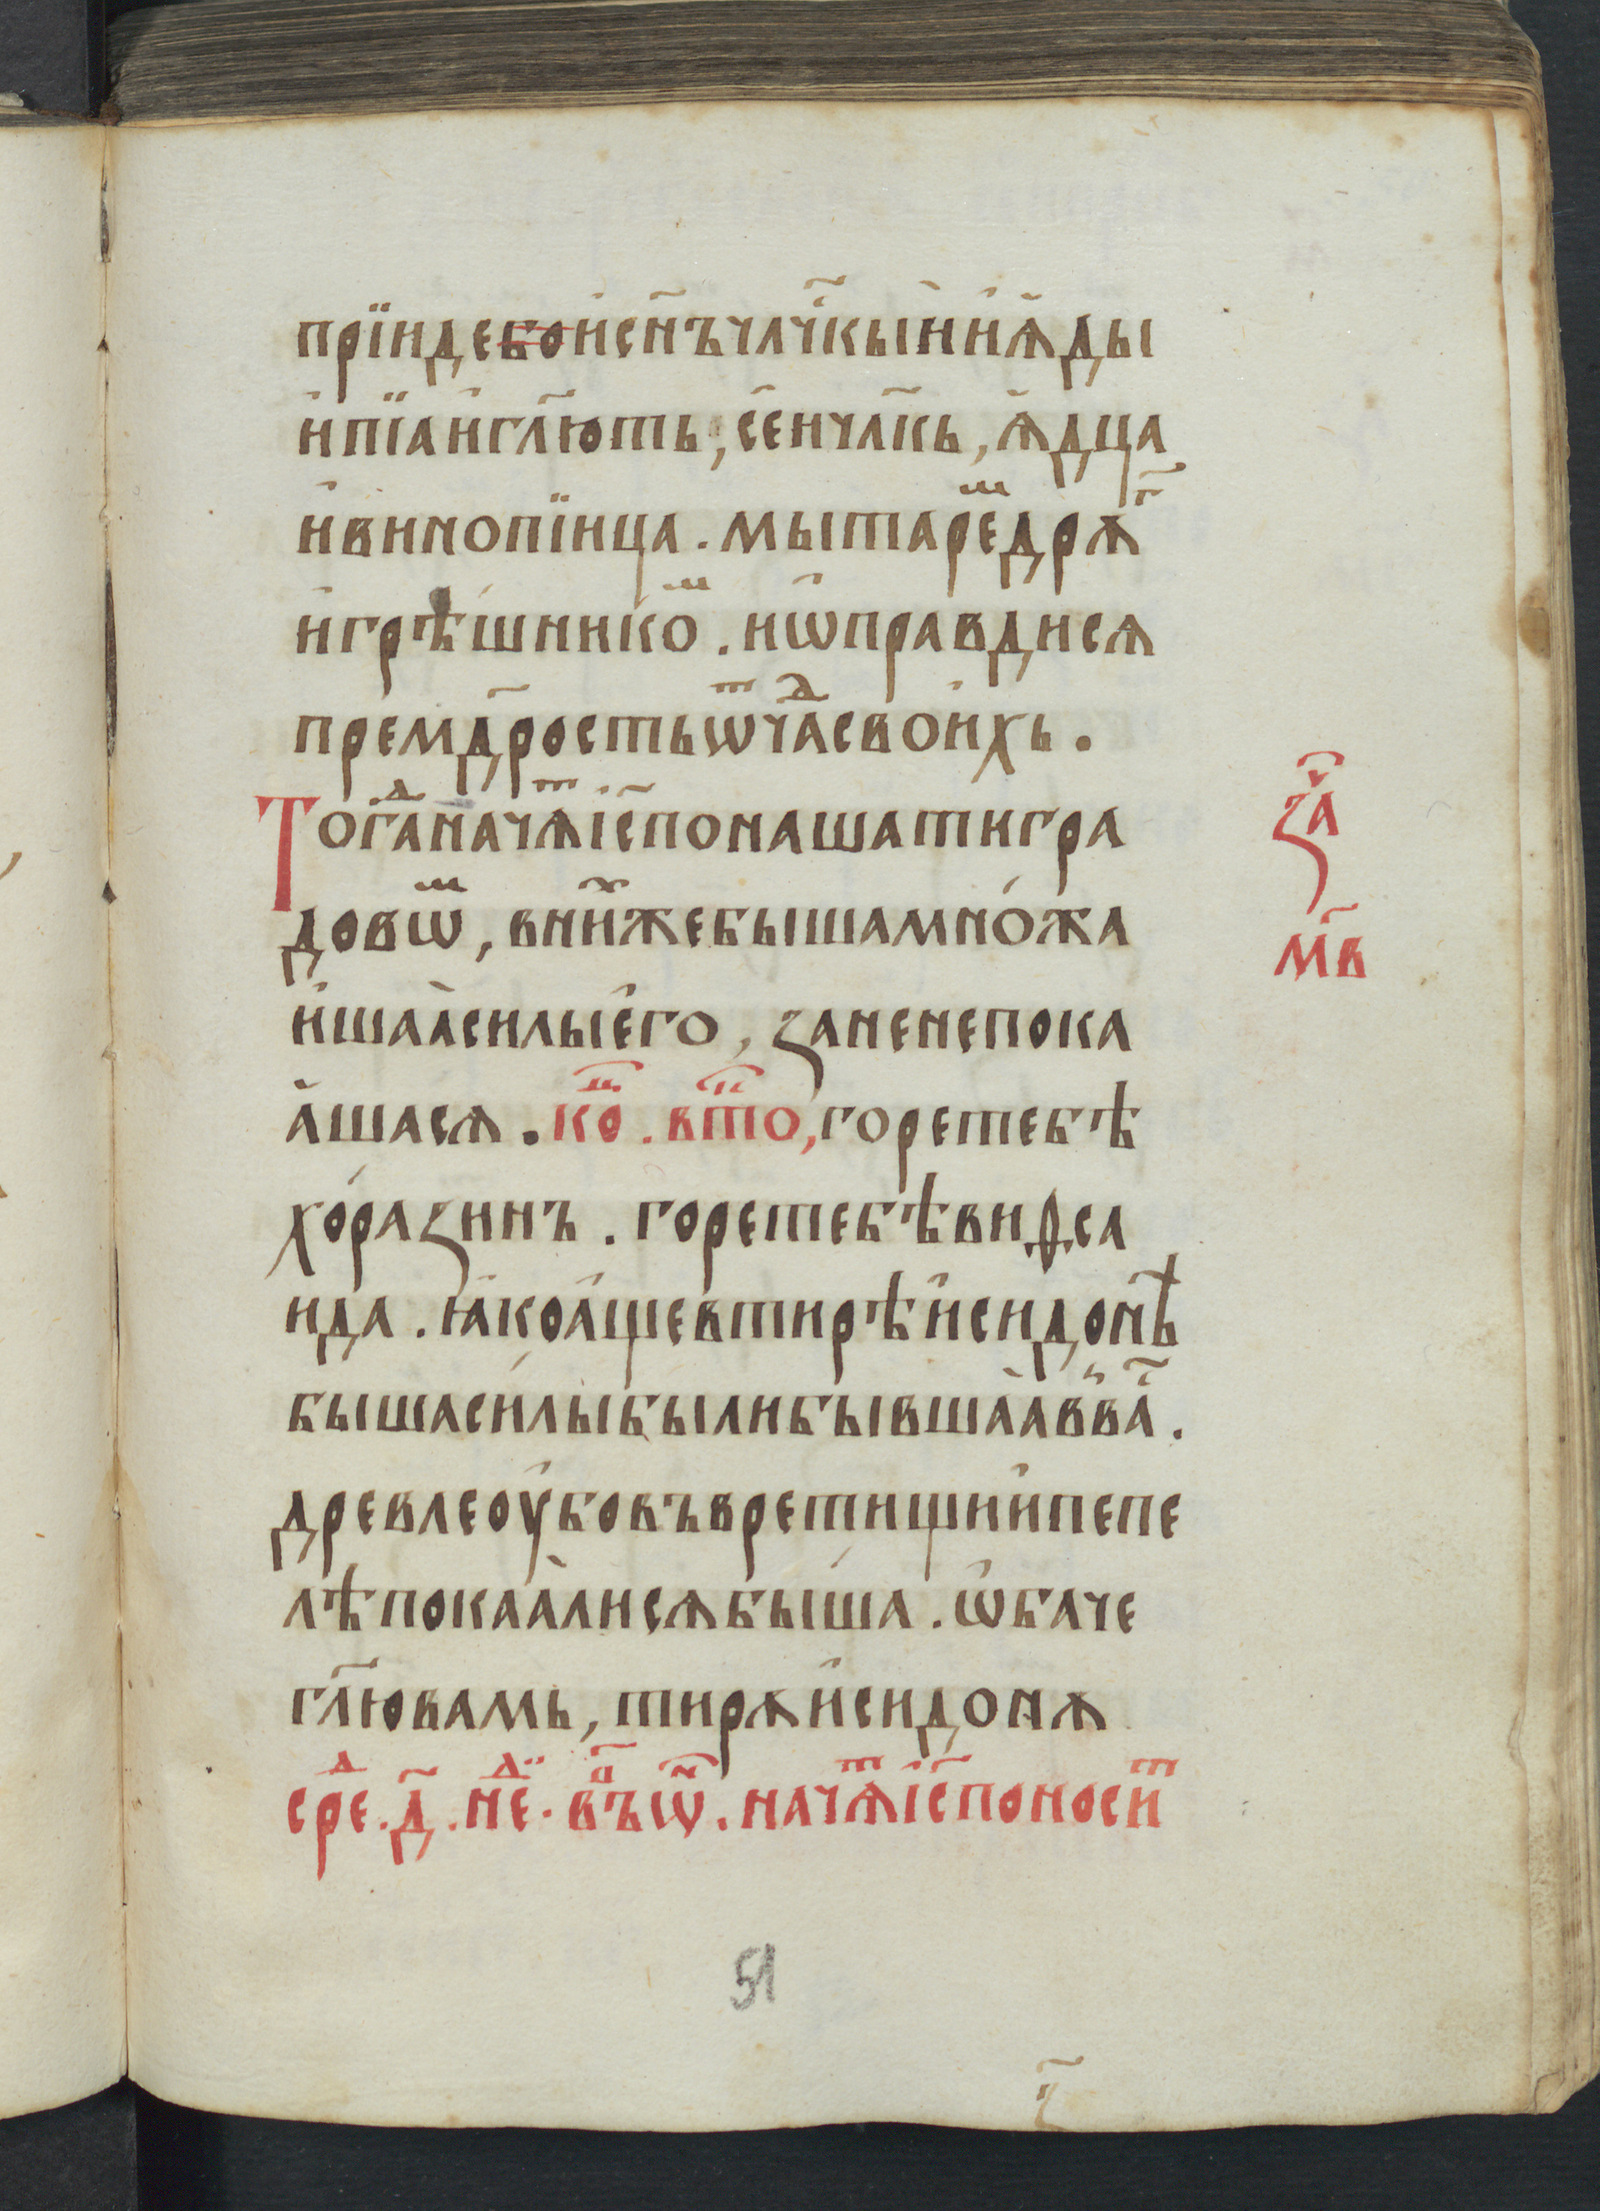 прїидебои҆сн҃ъчл҃чкыйиꙗ҆ды
и҆пїаи҆гл҃ють, се҆ичл҃кь, ꙗ҆дца
и҆винопїица. мытаре ⷨ дрꙋ ⷢ҇
и҆грѣ́шнико ⷨ . иѡ҆правдися
прем ⷣ҇ростьѿчⷶ ⷣсвои҆хь.
Тогⷣаначѧтⷭі҆с҃поношатигра
довѡ ⷨ , вни ⷯжебышамно́жа
и҆шаа҆силыего҆, заненепока
а҆шася. ко ⷰ҇. вто ⷬ҇, горетебѣ
хо́разинъ. горетебѣвиѳса
ида. ꙗ҆коа҆щевтирѣи҆сидонѣ
бышаси́лыбылибывшаа҆вва ⷭ҇.
древлеоу҆бовъвретищии҆пепе
лѣпокаа҆лисябы́ша. ѡ҆баче
гл҃ювамь, тирꙋи҆сидонꙋ
сре ⷣ. д҃. не ⷣ. въѡ ⷩ҇. начѧтⷭі҆с҃поносит
за ⷱ҇
м҃в
51